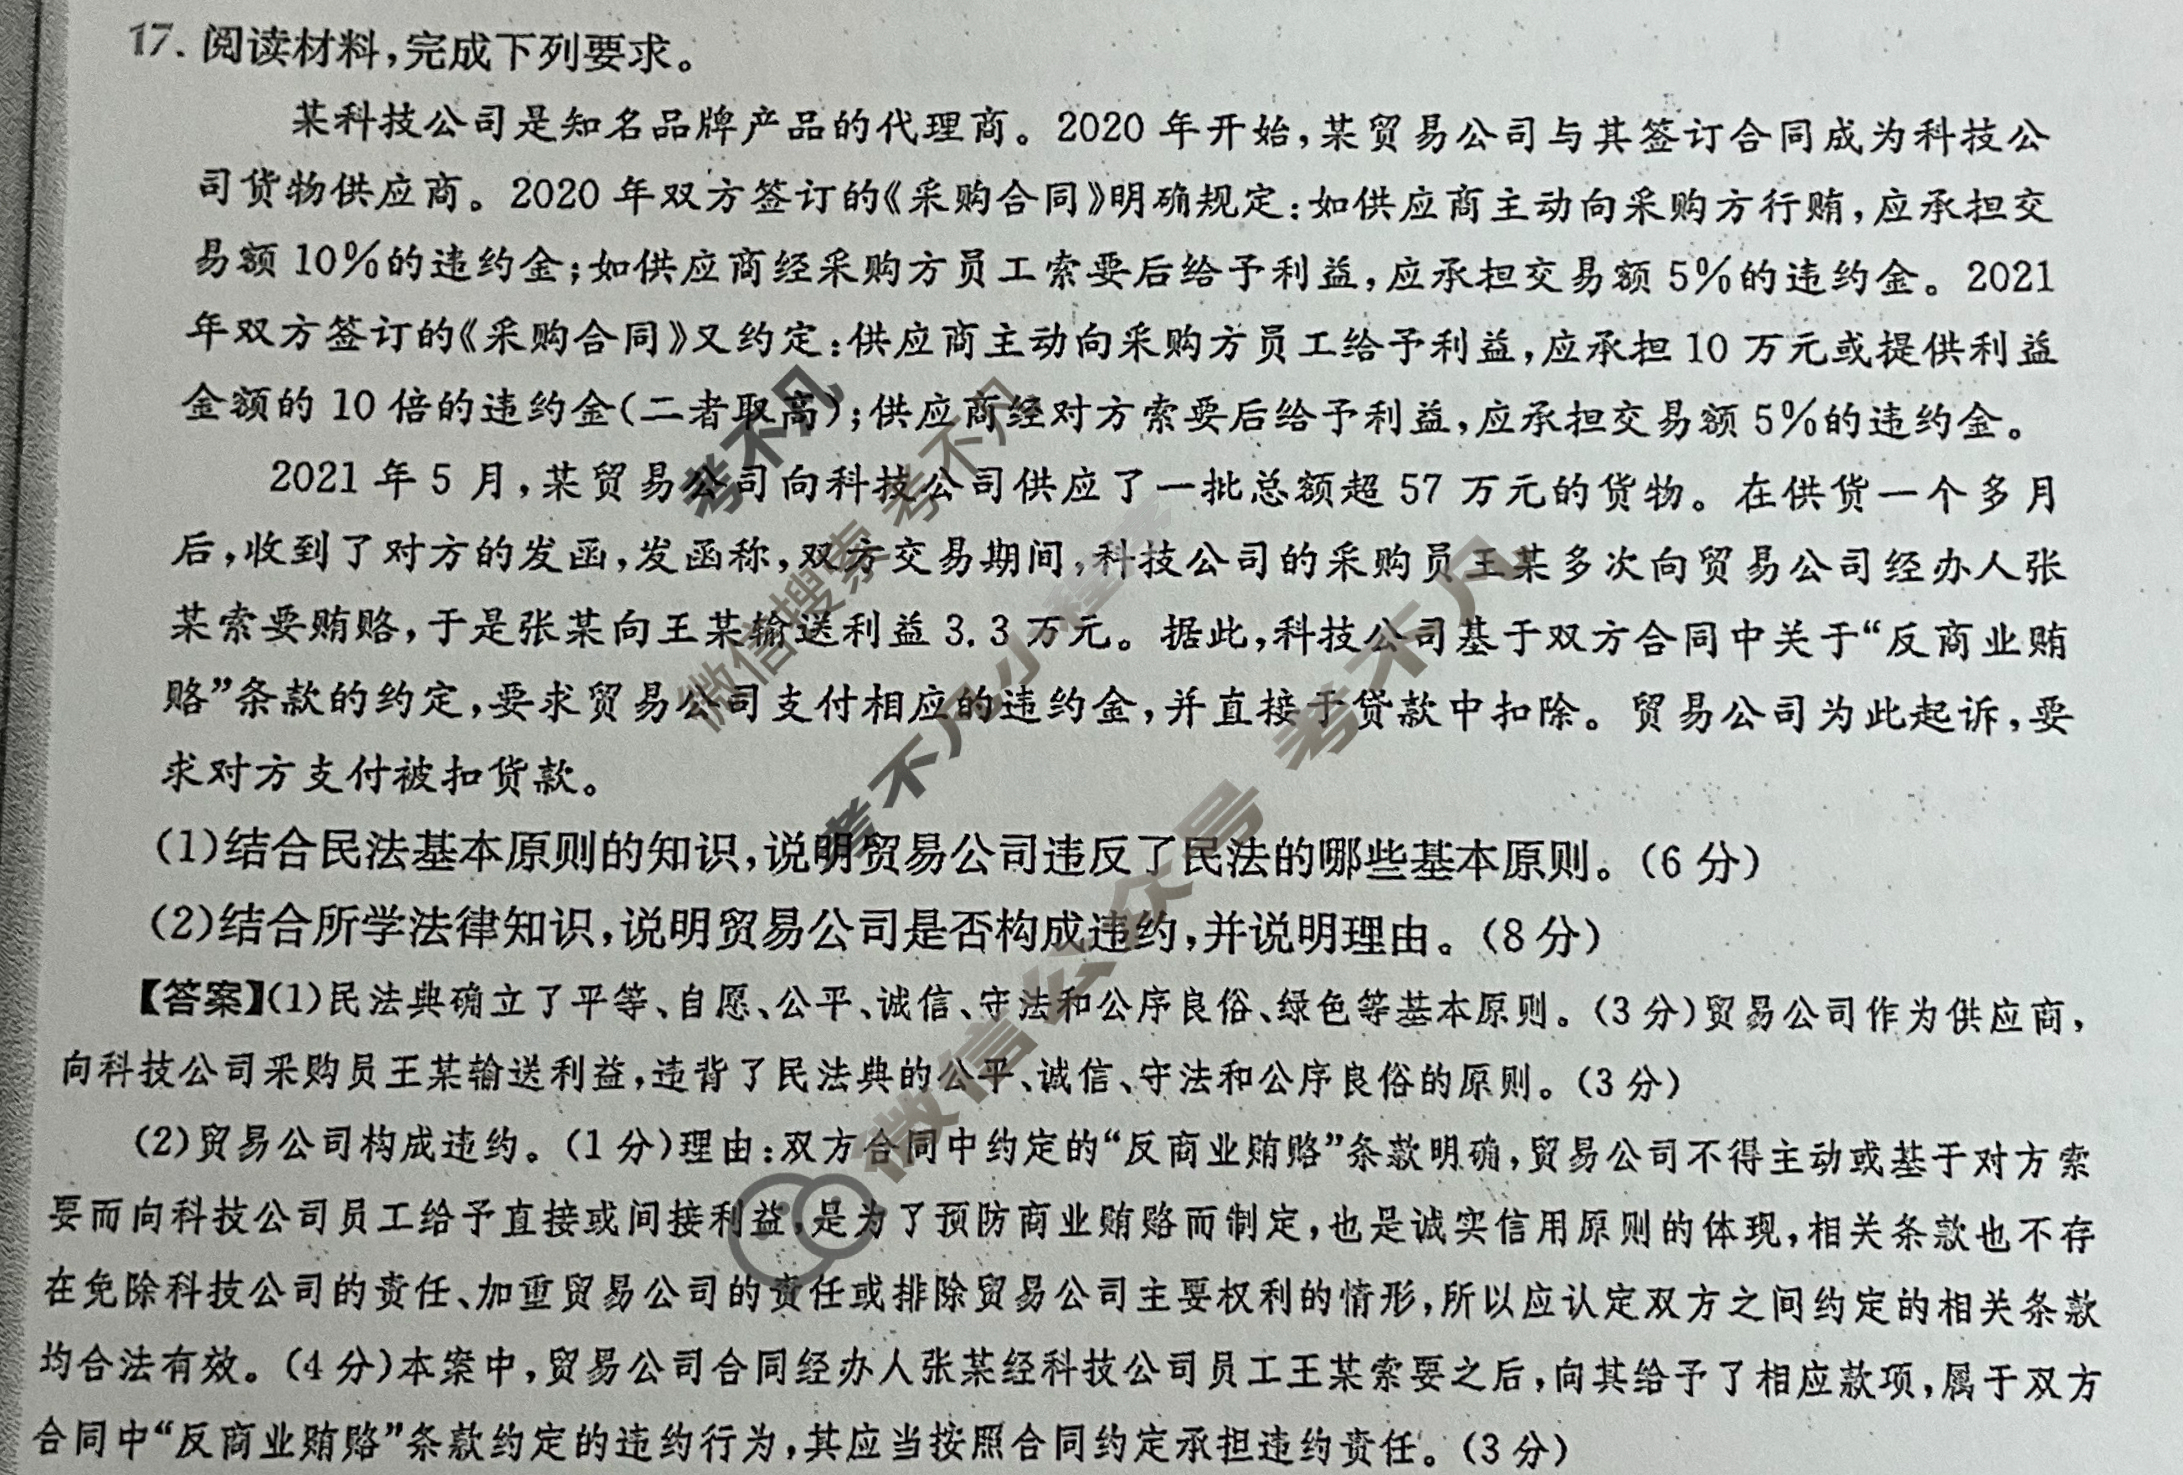 17. 阅读材料,完成下列要求。
某科技公司是知名品牌产品的代理商。2020 年开始,某贸易公司与其签订合同成为科技公
司货物供应商。2020 年双方签订的《采购合同》明确规定:如供应商主动向采购方行贿,应承担交
易额 10%的违约金;如供应商经采购方员工索要后给予利益,应承担交易额 5%的违约金。2021
年双方签订的《采购合同》又约定:供应商主动向采购方员工给予利益,应承担 10 万元或提供利益
金额的 10 倍的违约金(二者取高);供应商经对方索要后给予利益,应承担交易额 5%的违约金。
2021 年 5 月,某贸易公司向科技公司供应了一批总额超 57 万元的货物。在供货一个多月
后,收到了对方的发函,发函称,双方交易期间,科技公司的采购员王某多次向贸易公司经办人张
某索要贿赂,于是张某向王某输送利益 3.3 万元。据此,科技公司基于双方合同中关于“反商业贿
赂”条款的约定,要求贸易公司支付相应的违约金,并直接于贷款中扣除。贸易公司为此起诉,要
求对方支付被扣货款。
(1)结合民法基本原则的知识,说明贸易公司违反了民法的哪些基本原则。(6 分)
(2)结合所学法律知识,说明贸易公司是否构成违约,并说明理由。(8 分)
【答案】(1)民法典确立了平等、自愿、公平、诚信、守法和公序良俗、绿色等基本原则。(3 分)贸易公司作为供应商,
向科技公司采购员王某输送利益,违背了民法典的公平、诚信、守法和公序良俗的原则。(3 分)
(2)贸易公司构成违约。(1 分)理由:双方合同中约定的“反商业贿赂”条款明确,贸易公司不得主动或基于对方索
要而向科技公司员工给予直接或间接利益,是为了预防商业贿赂而制定,也是诚实信用原则的体现,相关条款也不存
在免除科技公司的责任、加重贸易公司的责任或排除贸易公司主要权利的情形,所以应认定双方之间约定的相关条款
均合法有效。(4 分)本案中,贸易公司合同经办人张某经科技公司员工王某索要之后,向其给予了相应款项,属于双方
合同中“反商业贿赂”条款约定的违约行为,其应当按照合同约定承担违约责任。(3 分)
考不凡
微信搜索 考不凡
考不凡小程序
微信公众号 考不凡